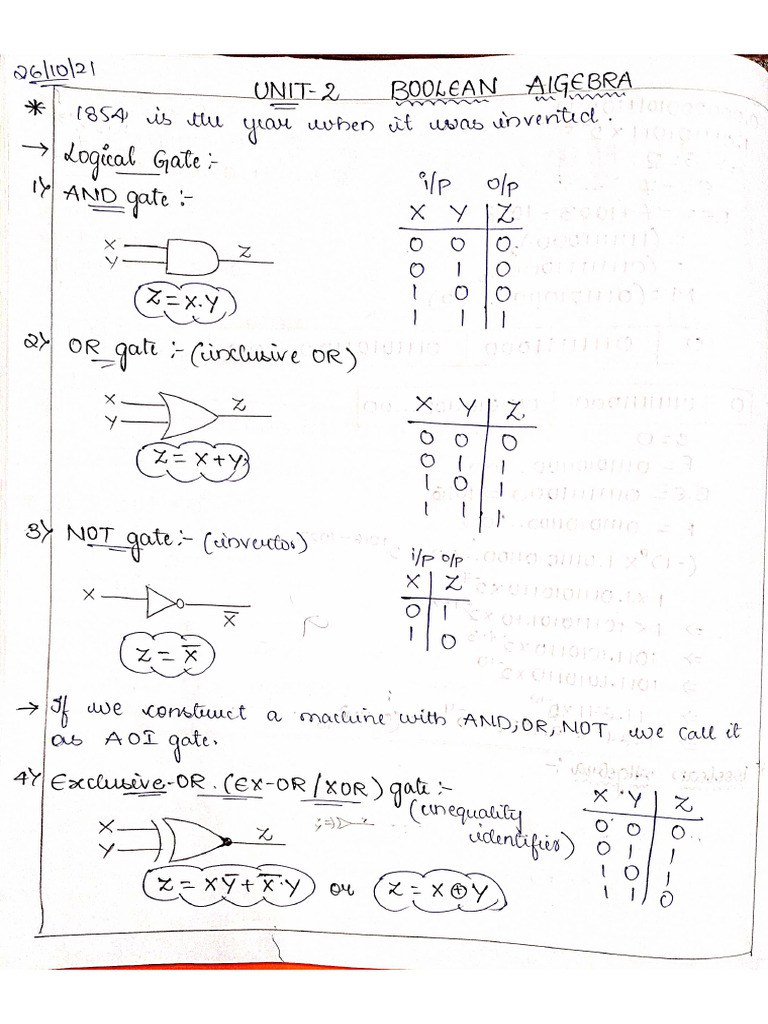 26/10/21
UNIT-2 BOOLEAN AlGEBRA
* 1854 is the year when it was invented.
→ Logical Gate:-
1) AND gate :-
i/p o/p
X Y Z
0 0 0
0 1 0
1 0 0
1 1 1
X
Y
Z
Z = X.Y
2) OR gate :- (inclusive OR)
X
Y
Z
Z = X+Y
X Y Z
0 0 0
0 1 1
1 0 1
1 1 1
3) NOT gate:- (invertor)
i/p o/p
X Z
0 1
1 0
X
X̅
Z = X̅
→ If we construct a machine with AND, OR, NOT we call it
as AOI gate.
4) Exclusive-OR. (EX-OR/XOR) gate:-
(inequality
identifier)
X Y Z
0 0 0
0 1 1
1 0 1
1 1 0
X
Y
Z
Z = XY̅ + X̅.Y or Z = X⊕Y